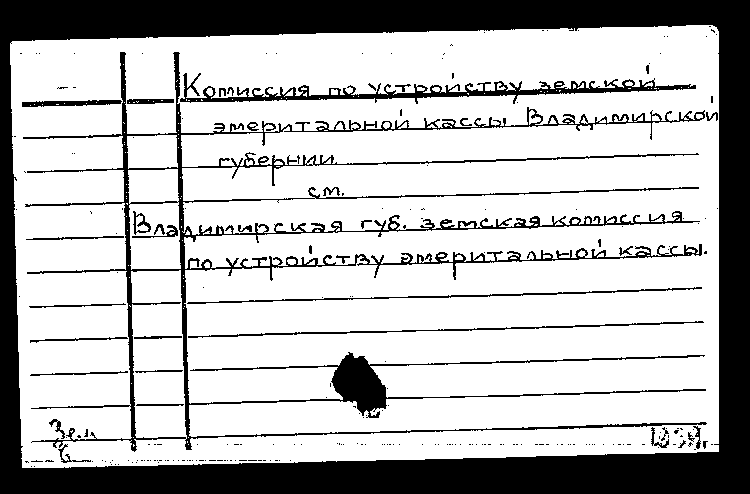 Комиссия по устройству земской
эмеритальной кассы Владимирской
губернии.
см.
Владимирская губ. земская комиссия
по устройству эмеритальной кассы.
Зем